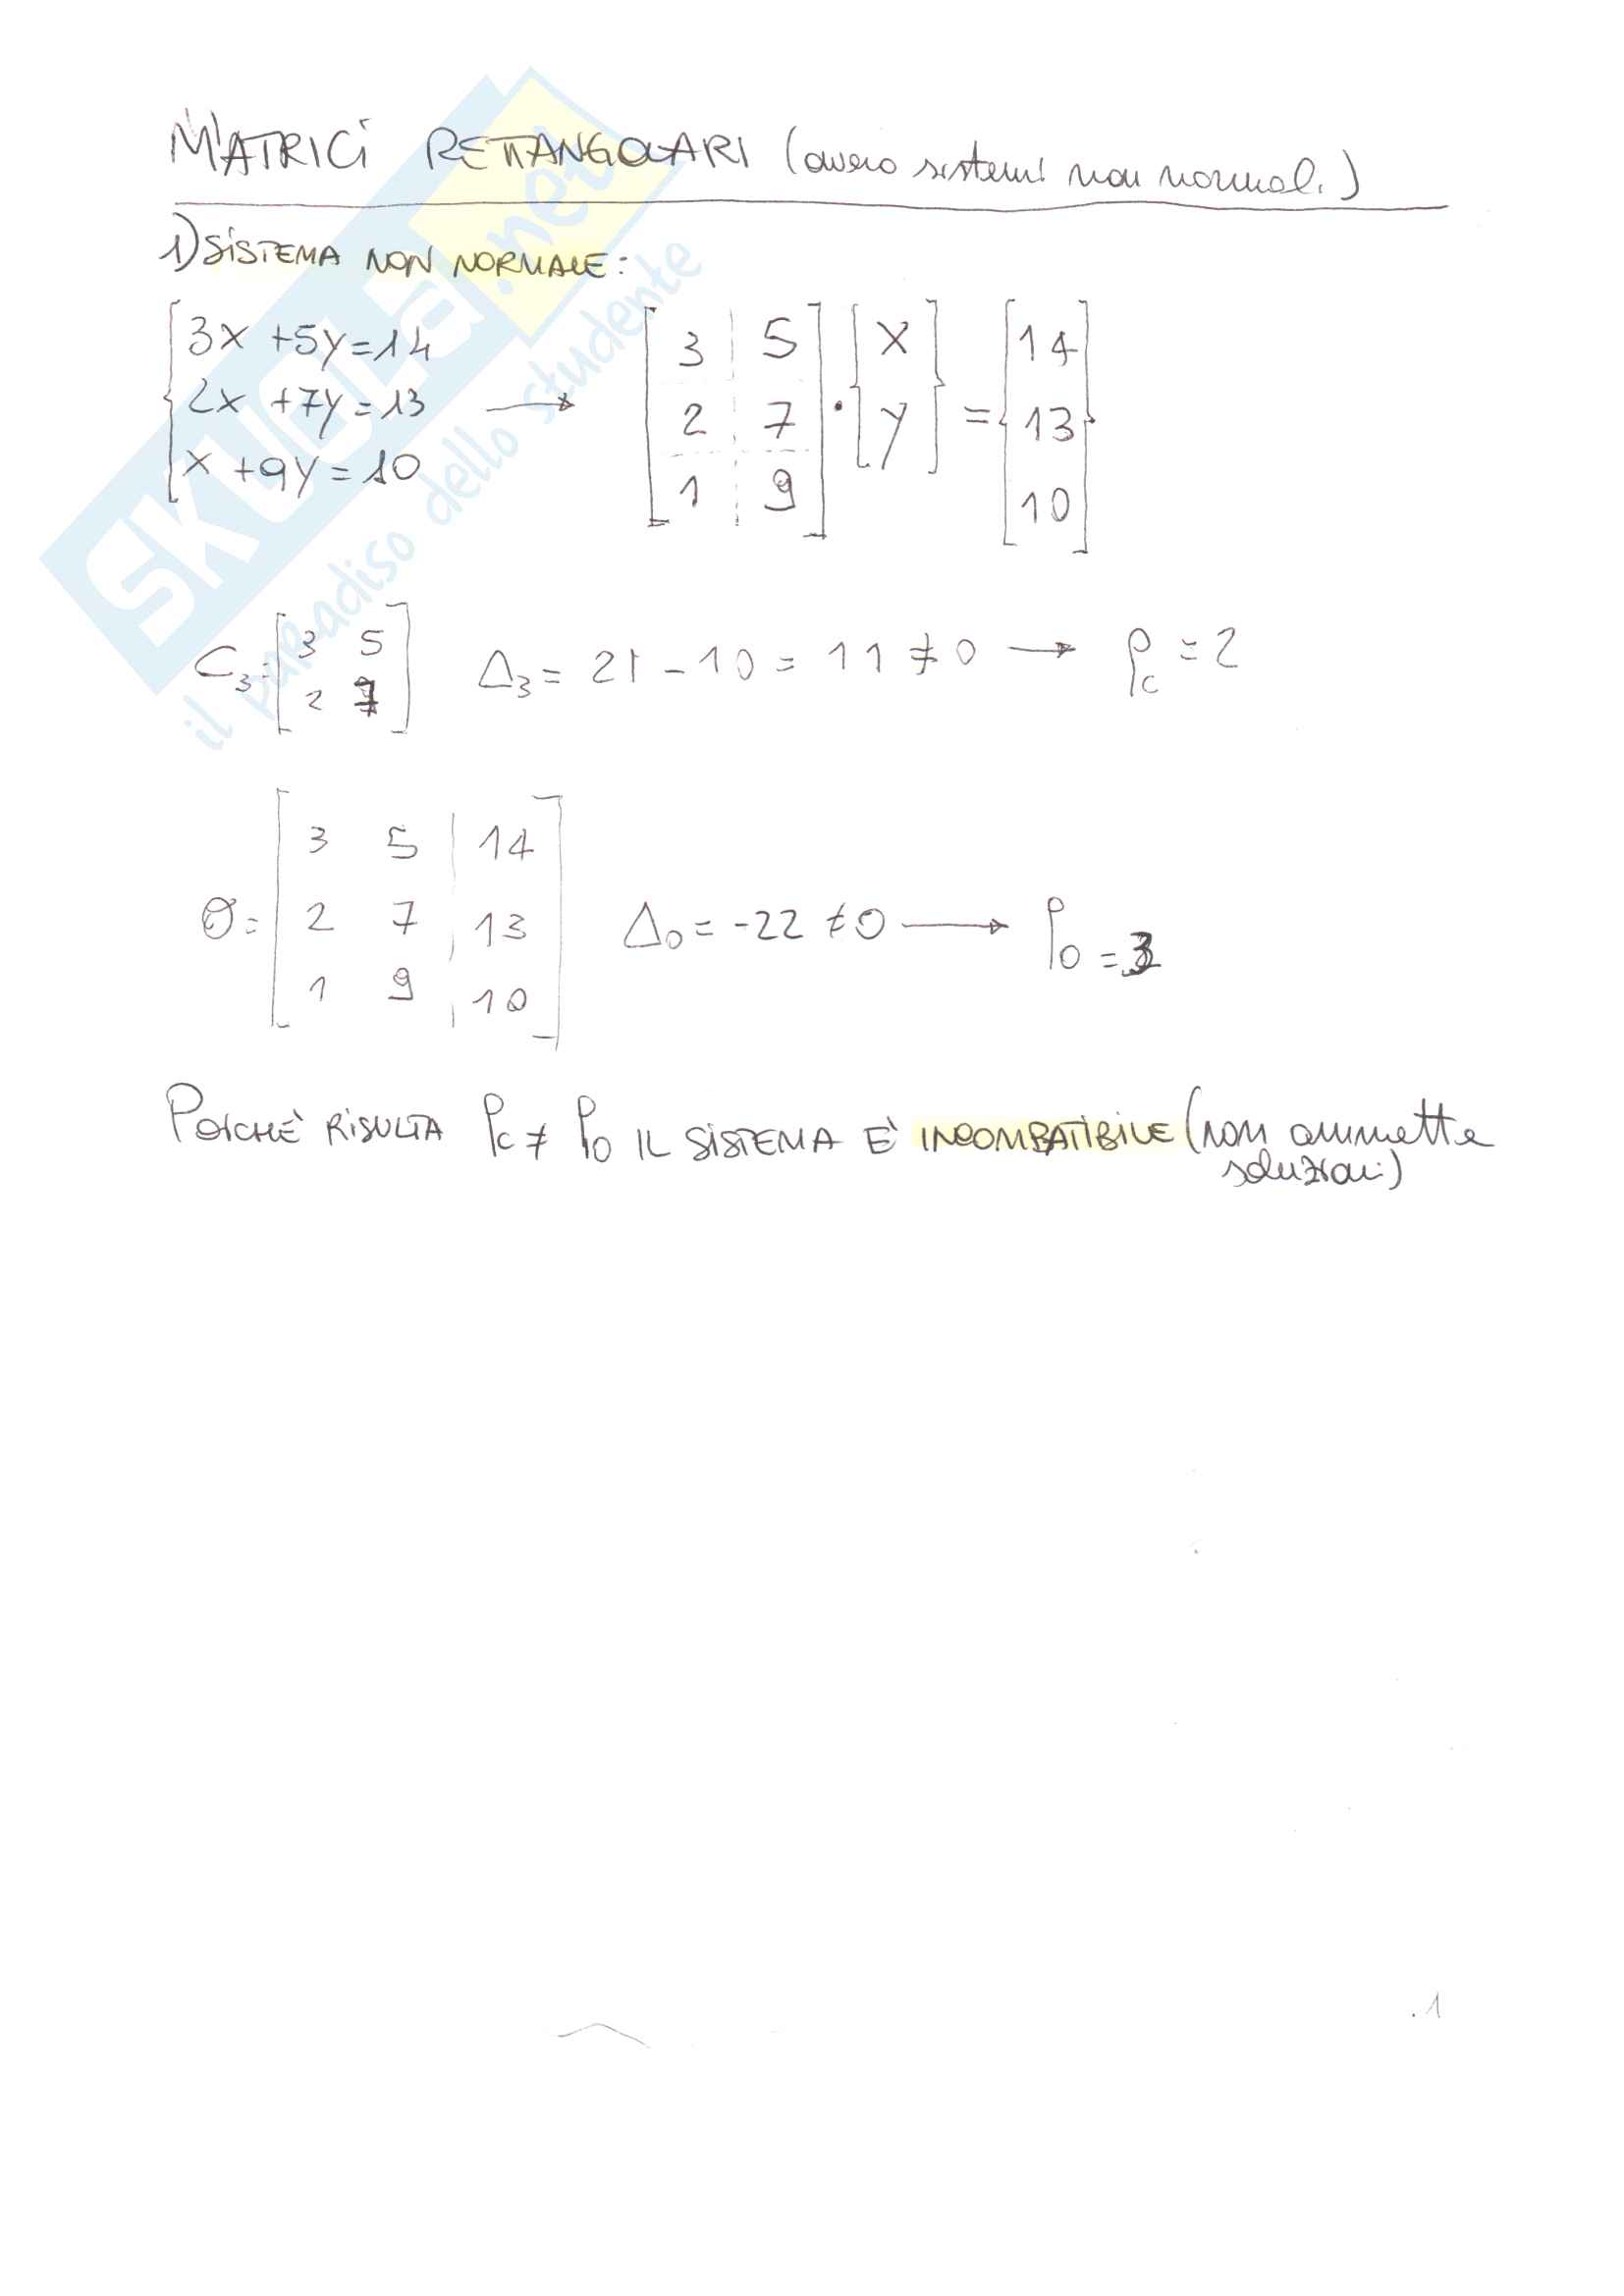 MATRICI RETTANGOLARI (ovvero sistemi non normali)
1) SISTEMA NON NORMALE:
3x +5y=14
2x +7y=13
x +9y=10
→
[3 5
2 7
1 9] · {x
y} = {14
13
10}
C₃=[3 5
2 7] Δ₃= 21-10= 11 ≠0 → ρc =2
O= [3 5 | 14
2 7 | 13
1 9 | 10] Δ₀= -22 ≠0 → ρ₀ =3
POICHÈ RISULTA ρc ≠ ρ₀ IL SISTEMA È INCOMBATIBILE (non ammette
soluzioni)
.1
SKUOLA.net
il paradiso dello studente